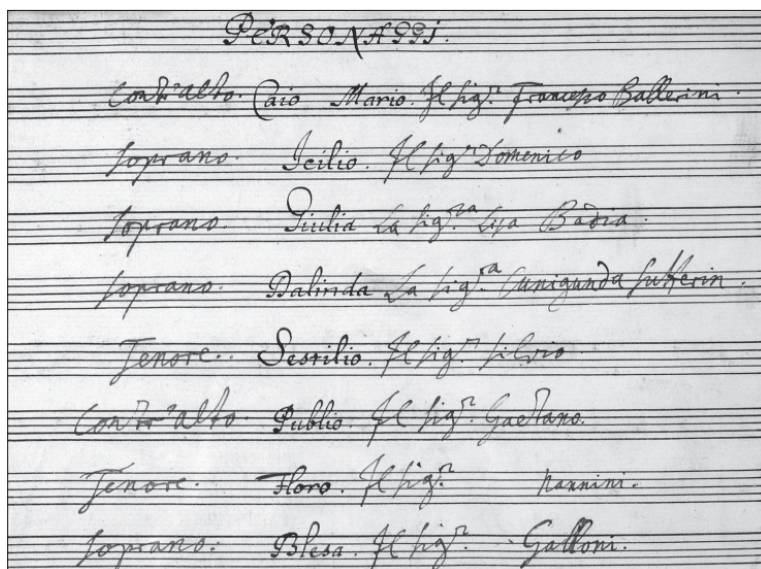 PERSONAGGI.
Contr'alto. Caio Mario. Il sig.r Francesco Ballerini.
Soprano. Icilio. Il sig.r Domenico
Soprano. Giulia La sig.ra Lisa Badia.
Soprano. Dalinda La sig.ra Cunigunda Sutterin.
Tenore. Sestilio. Il sig.r Silvio
Contr'alto. Publio. Il sig.r Gaetano.
Tenore. Floro. Il sig.r Nannini.
Soprano. Blesa. Il sig.r Galloni.